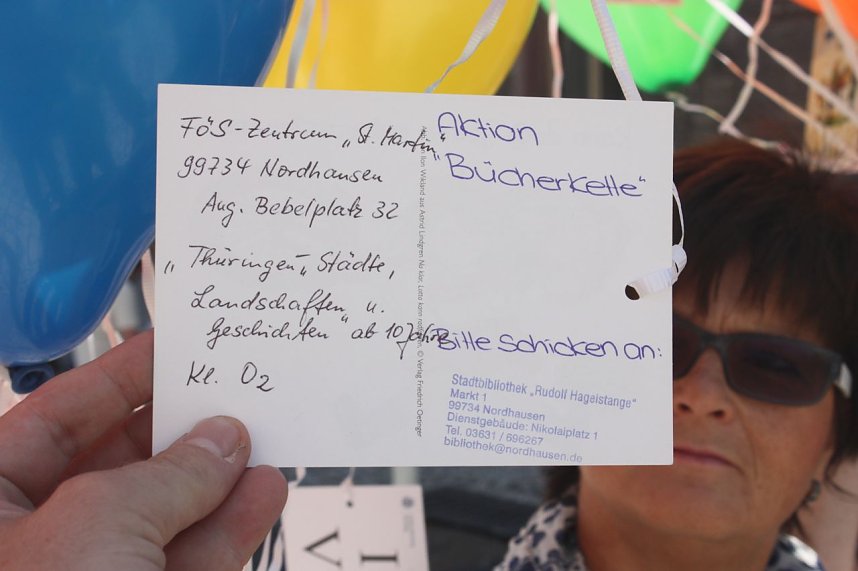 FöS-Zentrum „St. Martin“
99734 Nordhausen
Aug. Bebelplatz 32
„Thüringen-„Städte,
Landschaften u.
Geschichten“ ab 10 Jahre
Kl. O2
Aktion
„Bücherkette“
Bitte schicken an:
Stadtbibliothek „Rudolf Hagelstange“
Markt 1
99734 Nordhausen
Dienstgebäude: Nikolaiplatz 1
Tel. 03631 / 696267
bibliothek@nordhausen.de
Ilon Wikland aus Astrid Lindgren: Na klar, Lotta kann © Verlag Friedrich Oetinger
I
V